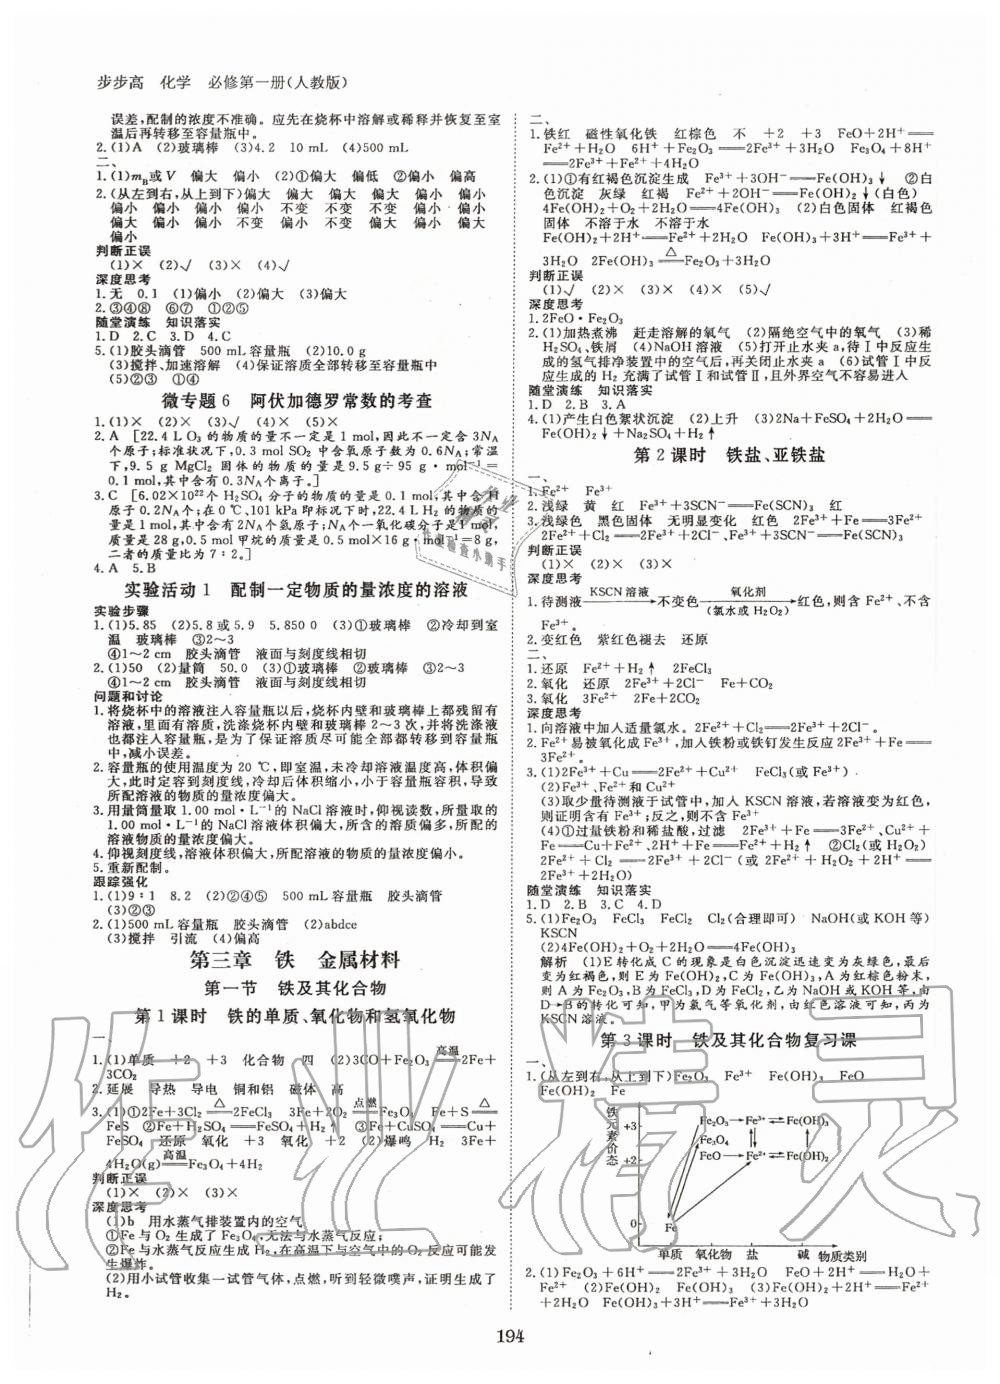 步步高 化学 必修第一册(人教版)
误差,配制的浓度不准确。应先在烧杯中溶解或稀释并恢复至室
温后再转移至容量瓶中。
2.(1)A (2)玻璃棒 (3)4.2 10 mL (4)500 mL
二、
1.(1)m_B或V 偏大 偏小 (2)①偏大 偏低 ②偏小 偏高
2.(从左到右,从上到下)偏大 偏大 偏大 偏大 偏小 偏小
偏小 偏小 偏小 偏小 不变 不变 不变 偏小 偏小
偏大 偏大 偏小 不变 偏小 偏大 不变 偏小 偏大
偏小
判断正误
(1)× (2)√ (3)× (4)√
深度思考
1.无 0.1 (1)偏小 (2)偏大 (3)偏大
2.③④⑧ ⑥⑦ ①②⑤
随堂演练 知识落实
1.D 2.C 3.D 4.C
5.(1)胶头滴管 500 mL容量瓶 (2)10.0 g
(3)搅拌、加速溶解 (4)保证溶质全部转移至容量瓶中
(5)②③ ①④
微专题6 阿伏加德罗常数的考查
1.(1)× (2)× (3)√ (4)×
2.A [22.4 L O₃的物质的量不一定是1 mol,因此不一定含3N_A
个原子;标准状况下,0.3 mol SO₂中含氧原子数为0.6N_A;常温
下,9.5 g MgCl₂ 固体的物质的量是9.5 g÷95 g·mol⁻¹=
0.1 mol,其中含有0.3N_A个离子。]
3.C [6.02×10²²个H₂SO₄分子的物质的量是0.1 mol,其中含H
原子0.2N_A个;在0 ℃、101 kPa即标况下时,22.4 L H₂的物质的
量是1 mol,其中含有2N_A个氢原子;N_A个一氧化碳分子是1 mol,
质量是28 g,0.5 mol甲烷的质量是0.5 mol×16 g·mol⁻¹=8 g,
二者的质量比为7∶2。]
4.A 5.B
实验活动1 配制一定物质的量浓度的溶液
实验步骤
1.(1)5.85 (2)5.8或5.9 5.850 0 (3)①玻璃棒 ②冷却到室
温 玻璃棒 ③2～3
④1～2 cm 胶头滴管 液面与刻度线相切
2.(1)50 (2)量筒 50.0 (3)①玻璃棒 ②玻璃棒 ③2～3
④1～2 cm 胶头滴管 液面与刻度线相切
问题和讨论
1.将烧杯中的溶液注入容量瓶以后,烧杯内壁和玻璃棒上都残留有
溶液,里面有溶质,洗涤烧杯内壁和玻璃棒2～3次,并将洗涤液
也都注入容量瓶,是为了保证溶质尽可能全部都转移到容量瓶
中,减小误差。
2.容量瓶的使用温度为20 ℃,即室温,未冷却溶液温度高,体积偏
大,此时定容到刻度线,冷却后体积缩小,小于容量瓶容积,导致
所配溶液的物质的量浓度偏大。
3.用量筒量取1.00 mol·L⁻¹的NaCl溶液时,仰视读数,所量取的
1.00 mol·L⁻¹的NaCl溶液体积偏大,所含的溶质偏多,所配的
溶液物质的量浓度偏大。
4.仰视刻度线,溶液体积偏大,所配溶液的物质的量浓度偏小。
5.重新配制。
跟踪强化
1.(1)9∶1 8.2 (2)②④⑤ 500 mL容量瓶 胶头滴管
(3)②③
2.(1)500 mL容量瓶 胶头滴管 (2)abdce
(3)搅拌 引流 (4)偏高
第三章 铁 金属材料
第一节 铁及其化合物
第1课时 铁的单质、氧化物和氢氧化物
一、
1.(1)单质 +2 +3 化合物 四 (2)3CO+Fe₂O₃═高温═2Fe+
3CO₂
2.延展 导热 导电 铜和铝 磁体 高
3.(1)①2Fe+3Cl₂═△═2FeCl₃ 3Fe+2O₂═点燃═Fe₃O₄ Fe+S═△═
FeS ②Fe+H₂SO₄═FeSO₄+H₂↑ ③Fe+CuSO₄═Cu+
FeSO₄ 还原 氧化 +3 氧化 +2 (2)爆鸣 H₂ 3Fe+
4H₂O(g)═高温═Fe₃O₄+4H₂
判断正误
(1)× (2)× (3)×
深度思考
(1)b 用水蒸气排装置内的空气
①Fe与O₂生成了Fe₃O₄,无法与水蒸气反应;
②Fe与水蒸气反应生成H₂,在高温下与空气中的O₂可能发
生爆炸。
(2)用小试管收集一试管气体,点燃,听到轻微噗声,证明生成了
H₂。
二、
1.铁红 磁性氧化铁 红棕色 不 +2 +3 FeO+2H⁺═
Fe²⁺+H₂O 6H⁺+Fe₂O₃═2Fe³⁺+3H₂O Fe₃O₄+8H⁺
═2Fe³⁺+Fe²⁺+4H₂O
2.(1)①有红褐色沉淀生成 Fe³⁺+3OH⁻═Fe(OH)₃↓ ②白
色沉淀 灰绿 红褐 Fe²⁺+2OH⁻═Fe(OH)₂↓(白色)
4Fe(OH)₂+O₂+2H₂O═4Fe(OH)₃ (2)白色固体 红褐色
固体 不溶于水 不溶于水
Fe(OH)₂+2H⁺═Fe²⁺+2H₂O Fe(OH)₃+3H⁺═Fe³⁺+
3H₂O 2Fe(OH)₃═△═Fe₂O₃+3H₂O
判断正误
(1)√ (2)× (3)× (4)× (5)√
深度思考
1.2FeO·Fe₂O₃
2.(1)加热煮沸 赶走溶解的氧气 (2)隔绝空气中的氧气 (3)稀
H₂SO₄、铁屑 (4)NaOH溶液 (5)打开止水夹a,待Ⅰ中反应生
成的氢气排净装置中的空气后,再关闭止水夹a (6)试管Ⅰ中反
应生成的H₂充满了试管Ⅰ和试管Ⅱ,且外界空气不容易进入
随堂演练 知识落实
1.D 2.B 3.A
4.(1)产生白色絮状沉淀 (2)上升 (3)2Na+FeSO₄+2H₂O═
Fe(OH)₂↓+Na₂SO₄+H₂↑
第2课时 铁盐、亚铁盐
一、
1.Fe²⁺ Fe³⁺
2.浅绿 黄 红 Fe³⁺+3SCN⁻═Fe(SCN)₃ 红
3.浅绿色 黑色固体 无明显变化 红色 2Fe³⁺+Fe═3Fe²⁺
2Fe²⁺+Cl₂═2Fe³⁺+2Cl⁻、Fe³⁺+3SCN⁻═Fe(SCN)₃
判断正误
(1)× (2)× (3)×
深度思考
1.待测液─KSCN溶液→不变色─氧化剂(氯水或H₂O₂)→红色,则含Fe²⁺、不含
Fe³⁺。
2.变红色 紫红色褪去 还原
二、
1.还原 Fe²⁺+H₂↑ 2FeCl₃
2.氧化 还原 2Fe³⁺+2Cl⁻ Fe+CO₂
3.氧化 3Fe²⁺ 2Fe+2CO₂
深度思考
1.向溶液中加入适量氯水。2Fe²⁺+Cl₂═2Fe³⁺+2Cl⁻
2.Fe²⁺易被氧化成Fe³⁺,加入铁粉或铁钉发生反应2Fe³⁺+Fe═
3Fe²⁺。
3.(1)2Fe³⁺+Cu═2Fe²⁺+Cu²⁺ FeCl₃(或Fe³⁺)
(2)Fe³⁺、Fe²⁺和Cu²⁺
(3)取少量待测液于试管中,加入KSCN溶液,若溶液变为红色,
则证明含有Fe³⁺;反之,则不含Fe³⁺
(4)①过量铁粉和稀盐酸,过滤 2Fe³⁺+Fe═3Fe²⁺、Cu²⁺+
Fe═Cu+Fe²⁺、2H⁺+Fe═Fe²⁺+H₂↑ ②Cl₂(或H₂O₂)
2Fe²⁺+Cl₂═2Fe³⁺+2Cl⁻(或2Fe²⁺+H₂O₂+2H⁺═
2Fe³⁺+2H₂O)
随堂演练 知识落实
1.D 2.B 3.C 4.D
5.(1)Fe₂O₃ FeCl₃ FeCl₂ Cl₂(合理即可) NaOH(或KOH等)
KSCN
(2)4Fe(OH)₂+O₂+2H₂O═4Fe(OH)₃
解析 (1)E转化成C的现象是白色沉淀迅速变为灰绿色,最后
变为红褐色,则E为Fe(OH)₂,C为Fe(OH)₃,A为红棕色粉末,
则A为Fe₂O₃,B为FeCl₃,D为FeCl₂,乙为NaOH或KOH等,由
D→B的转化可知,甲为氯气等氧化剂,由红色溶液可知,丙为
KSCN溶液。
第3课时 铁及其化合物复习课
一、
1.(从左到右,从上到下)Fe₂O₃ Fe³⁺ Fe(OH)₃ FeO
Fe(OH)₂ Fe
铁元素价态
+3
+2
0
Fe₂O₃→Fe³⁺⇌Fe(OH)₃
Fe₃O₄
FeO→Fe²⁺⇌Fe(OH)₂
Fe
单质 氧化物 盐 碱 物质类别
2.(1)Fe₂O₃+6H⁺═2Fe³⁺+3H₂O FeO+2H⁺═H₂O+
Fe²⁺ (2)Fe(OH)₂ Fe(OH)₃ (3)Fe(OH)₂+2H⁺═
Fe²⁺+2H₂O Fe(OH)₃+3H⁺═Fe³⁺+3H₂O
194
作业精灵
作业检查小助手